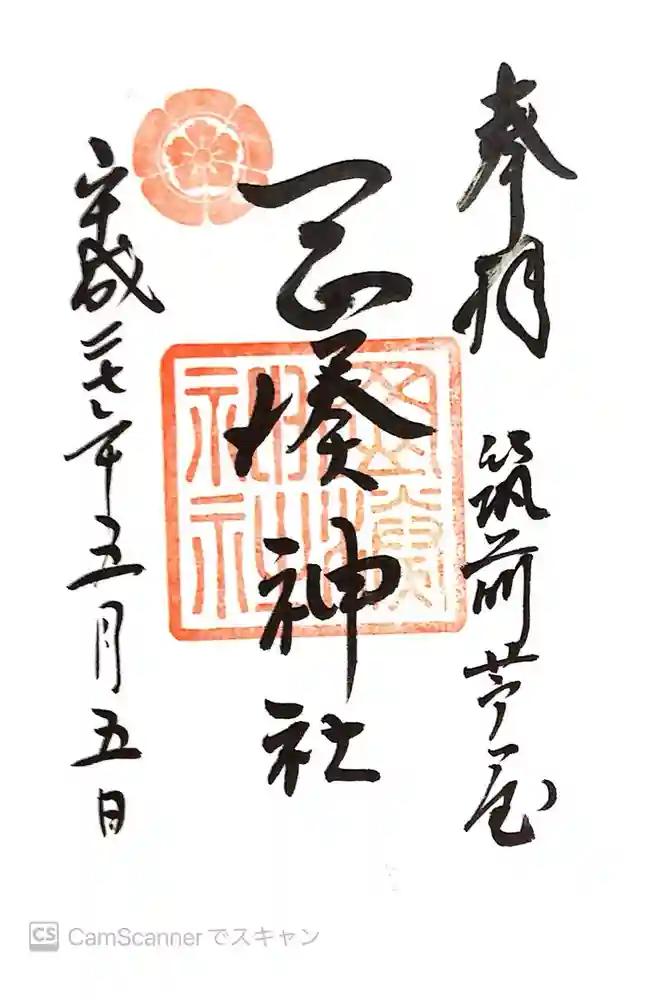 奉拝
筑前芦屋
岡湊神社
平成二十七年五月五日
CS CamScanner でスキャン